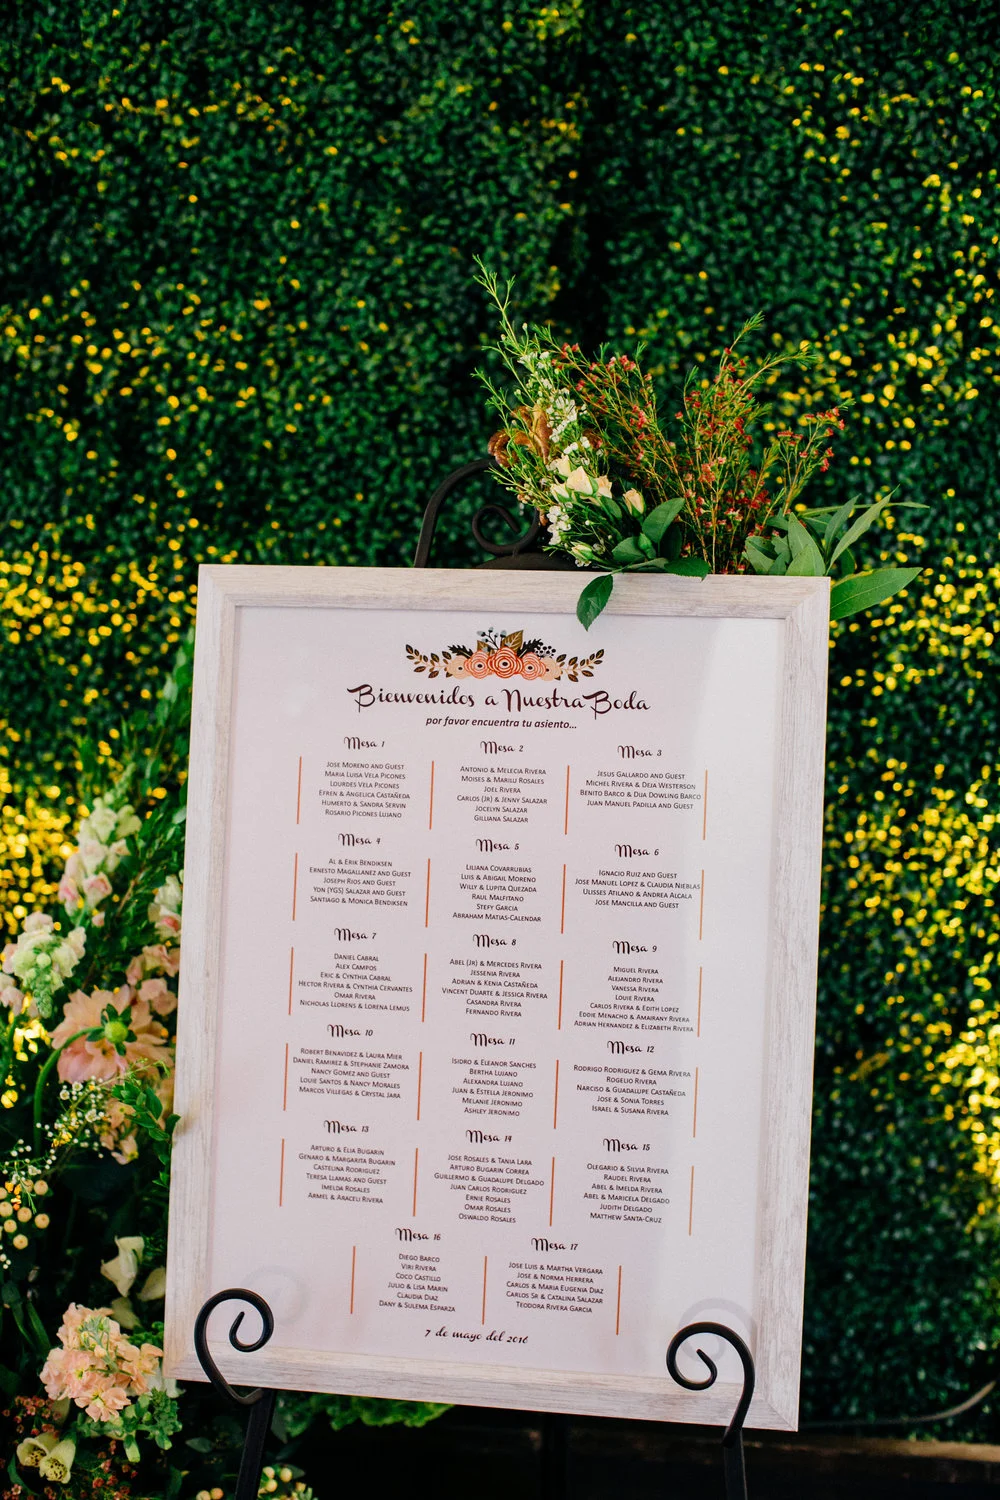 Bienvenidos a Nuestra Boda
por favor encuentra tu asiento...
Mesa 1
Jose Moreno and Guest
Maria Luisa Vela Picones
Lourdes Vela Picones
Efren & Angelica Castañeda
Humerto & Sandra Servin
Rosario Picones Lujano
Mesa 2
Antonio & Melecia Rivera
Moises & Marilu Rosales
Joel Rivera
Carlos (Jr) & Jenny Salazar
Jocelyn Salazar
Gilliana Salazar
Mesa 3
Jesus Gallardo and Guest
Michel Rivera & Deja Westerson
Benito Barco & Dua Dowling Barco
Juan Manuel Padilla and Guest
Mesa 4
Al & Erik Bendiksen
Ernesto Magallanez and Guest
Joseph Rios and Guest
Yon (YGS) Salazar and Guest
Santiago & Monica Bendiksen
Mesa 5
Liliana Covarrubias
Luis & Abigail Moreno
Willy & Lupita Quezada
Raul Malfitano
Stefy Garcia
Abraham Matias-Calendar
Mesa 6
Ignacio Ruiz and Guest
Jose Manuel Lopez & Claudia Nieblas
Ulisses Atilano & Andrea Alcala
Jose Mancilla and Guest
Mesa 7
Daniel Cabral
Alex Campos
Eric & Cynthia Cabral
Hector Rivera & Cynthia Cervantes
Omar Rivera
Nicholas Llorens & Lorena Lemus
Mesa 8
Abel (Jr) & Mercedes Rivera
Jessenia Rivera
Adrian & Kenia Castañeda
Vincent Duarte & Jessica Rivera
Casandra Rivera
Fernando Rivera
Mesa 9
Miguel Rivera
Alejandro Rivera
Vanessa Rivera
Louie Rivera
Carlos Rivera & Edith Lopez
Eddie Menacho & Amairany Rivera
Adrian Hernandez & Elizabeth Rivera
Mesa 10
Robert Benavidez & Laura Mier
Daniel Ramirez & Stephanie Zamora
Nancy Gomez and Guest
Louie Santos & Nancy Morales
Marcos Villegas & Crystal Jara
Mesa 11
Isidro & Eleanor Sanches
Bertha Lujano
Alexandra Lujano
Juan & Estella Jeronimo
Melanie Jeronimo
Ashley Jeronimo
Mesa 12
Rodrigo Rodriguez & Gema Rivera
Rogelio Rivera
Narciso & Guadalupe Castañeda
Jose & Sonia Torres
Israel & Susana Rivera
Mesa 13
Arturo & Elia Bugarin
Genaro & Margarita Bugarin
Castelina Rodriguez
Teresa Llamas and Guest
Imelda Rosales
Armel & Araceli Rivera
Mesa 14
Jose Rosales & Tania Lara
Arturo Bugarin Correa
Guillermo & Guadalupe Delgado
Juan Carlos Rodriguez
Ernie Rosales
Omar Rosales
Oswaldo Rosales
Mesa 15
Olegario & Silvia Rivera
Raudel Rivera
Abel & Imelda Rivera
Abel & Maricela Delgado
Judith Delgado
Matthew Santa-Cruz
Mesa 16
Diego Barco
Viri Rivera
Coco Castillo
Julio & Lisa Marin
Claudia Diaz
Dany & Sulema Esparza
Mesa 17
Jose Luis & Martha Vergara
Jose & Norma Herrera
Carlos & Maria Eugenia Diaz
Carlos Sr & Catalina Salazar
Teodora Rivera Garcia
7 de mayo del 2016